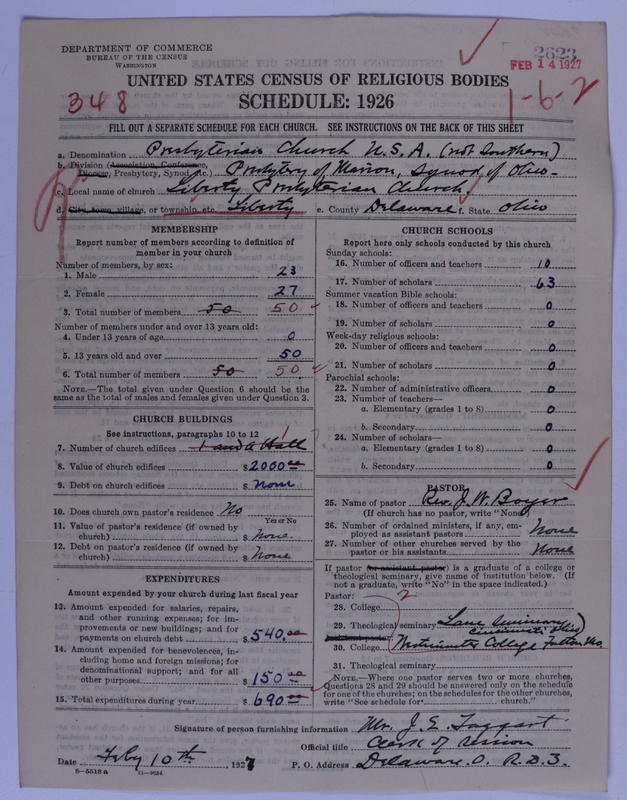 DEPARTMENT OF COMMERCE
BUREAU OF THE CENSUS
WASHINGTON
2623
FEB 14 1927
UNITED STATES CENSUS OF RELIGIOUS BODIES
348
SCHEDULE: 1926
1-6-2
FILL OUT A SEPARATE SCHEDULE FOR EACH CHURCH. SEE INSTRUCTIONS ON THE BACK OF THIS SHEET
a. Denomination Presbyterian Church U.S.A. (not Southern)
b. Division (Association, Conference, Diocese, Presbytery, Synod, etc.) Presbytery of Marion, Synod of Ohio
c. Local name of church Liberty Presbyterian Church.
d. City, town, village, or township, etc. Liberty e. County Delaware f. State Ohio
MEMBERSHIP
Report number of members according to definition of
member in your church
Number of members, by sex:
1. Male 23
2. Female 27
3. Total number of members 50 50
Number of members under and over 13 years old:
4. Under 13 years of age 0
5. 13 years old and over 50
6. Total number of members 50 50
NOTE.—The total given under Question 6 should be
same as the total of males and females given under Question 3.
CHURCH BUILDINGS
See instructions, paragraphs 10 to 12
7. Number of church edifices 1 and a Hall 1
8. Value of church edifices $ 2000.00
9. Debt on church edifices $ None
10. Does church own pastor's residence No
Yes or No
11. Value of pastor's residence (if owned by
church) $ None
12. Debt on pastor's residence (if owned by
church) $ None
EXPENDITURES
Amount expended by church during last fiscal year
13. Amount expended for salaries, repairs,
and other running expenses; for im-
provements or new buildings; and for
payments on church debt $ 540.00
14. Amount expended for benevolences, in-
cluding home and foreign missions; for
denominational support; and for all
other purposes $ 150.00
15. Total expenditures during year $ 690.00
CHURCH SCHOOLS
Report here only schools conducted by this church
Sunday schools:
16. Number of officers and teachers 10
17. Number of scholars 63
Summer vacation Bible schools:
18. Number of officers and teachers 0
19. Number of scholars 0
Week-day religious schools:
20. Number of officers and teachers 0
21. Number of scholars 0
Parochial schools:
22. Number of administrative officers 0
23. Number of teachers—
a. Elementary (grades 1 to 8) 0
b. Secondary 0
24. Number of scholars—
a. Elementary (grades 1 to 8) 0
b. Secondary 0
PASTOR
25. Name of pastor Rev. J. W. Boyer
(If church has no pastor, write "None")
26. Number of ordained ministers, if any, em-
ployed as assistant pastors None
27. Number of other churches served by the
pastor or his assistants None
If pastor (or assistant pastor) is a graduate of a college or
theological seminary, give name of institution below. (If
not a graduate, write "No" in the space indicated.)
Pastor:
28. College
29. Theological seminary Lane Seminary
Cincinnati Ohio
30. College Westminster College Fulton Mo.
31. Theological seminary
NOTE.—Where one pastor serves two or more churches,
Questions 28 and 29 should be answered only on the schedule
for one of the churches; on the schedules for the other churches,
write "See schedule for church."
Signature of person furnishing information Mr. J. E. Taggart
Official title Clerk of Session
Date Feby 10th, 1927 P. O. Address Delaware. O. R.D.3.
8-5518a 11-9624